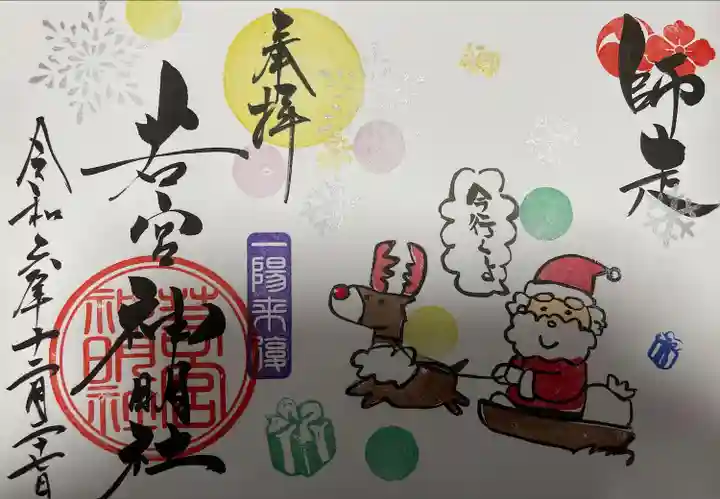 師走
奉拝
今行くよ
一陽来復
若宮神明社
若宮神明社
令和六年十二月二十七日